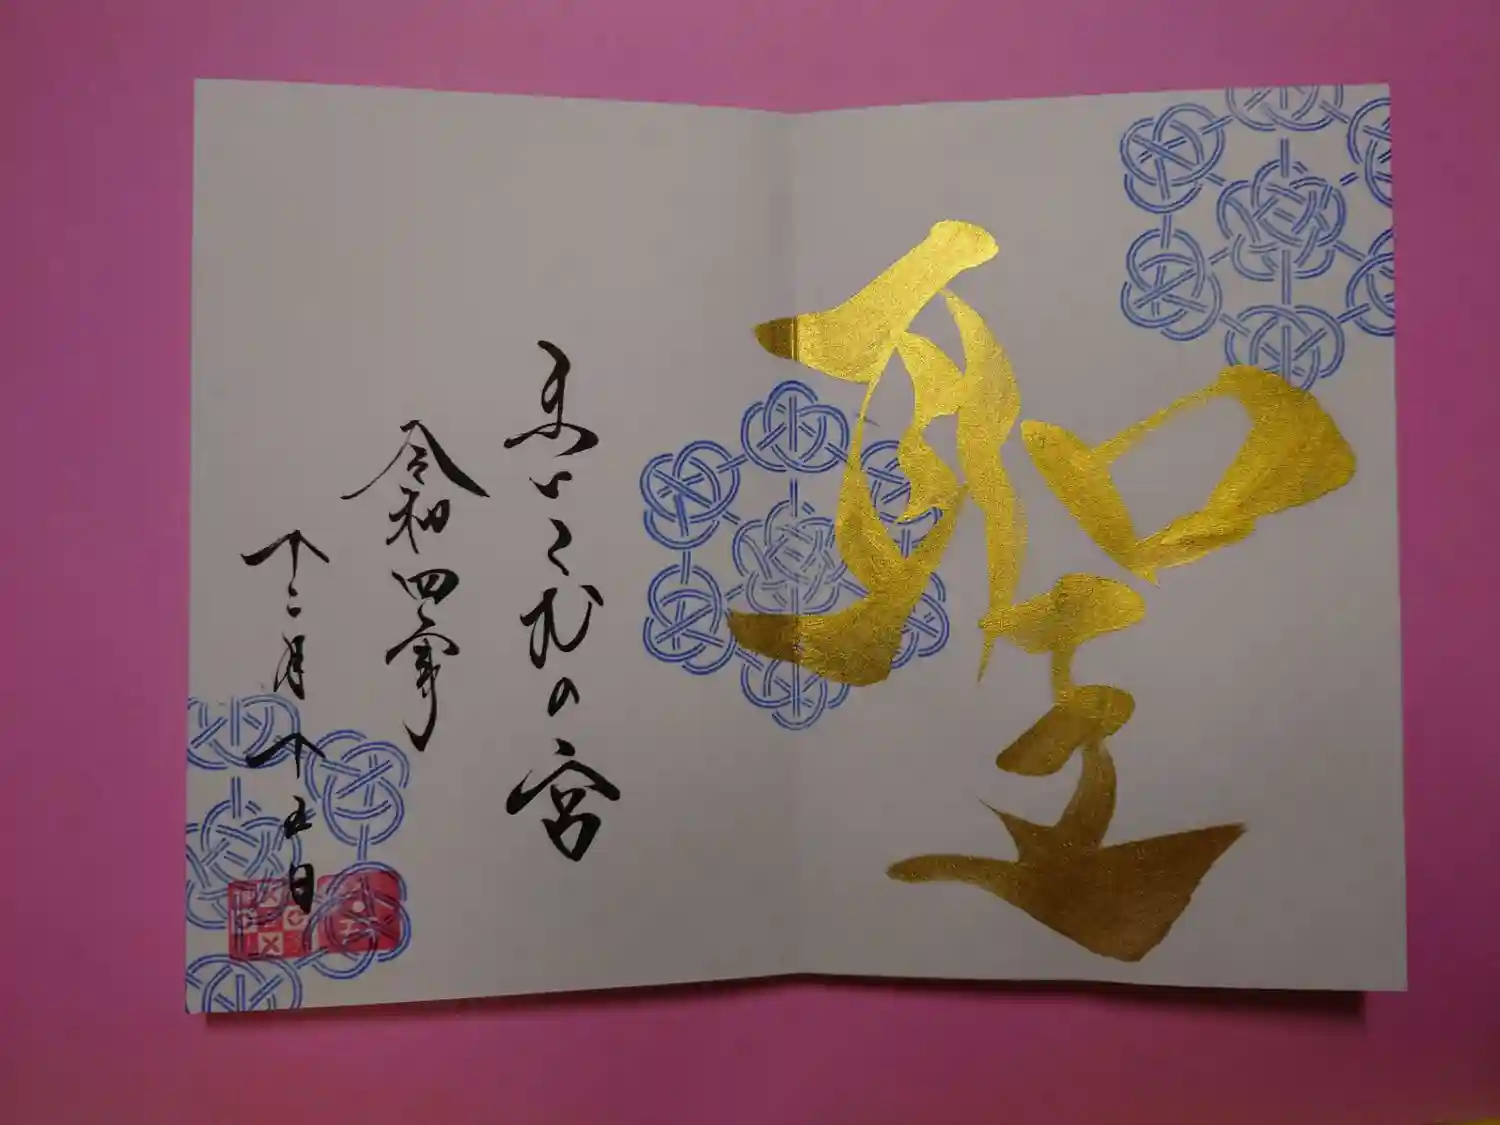 聖
まいこむの宮
令和四年
十二月十五日